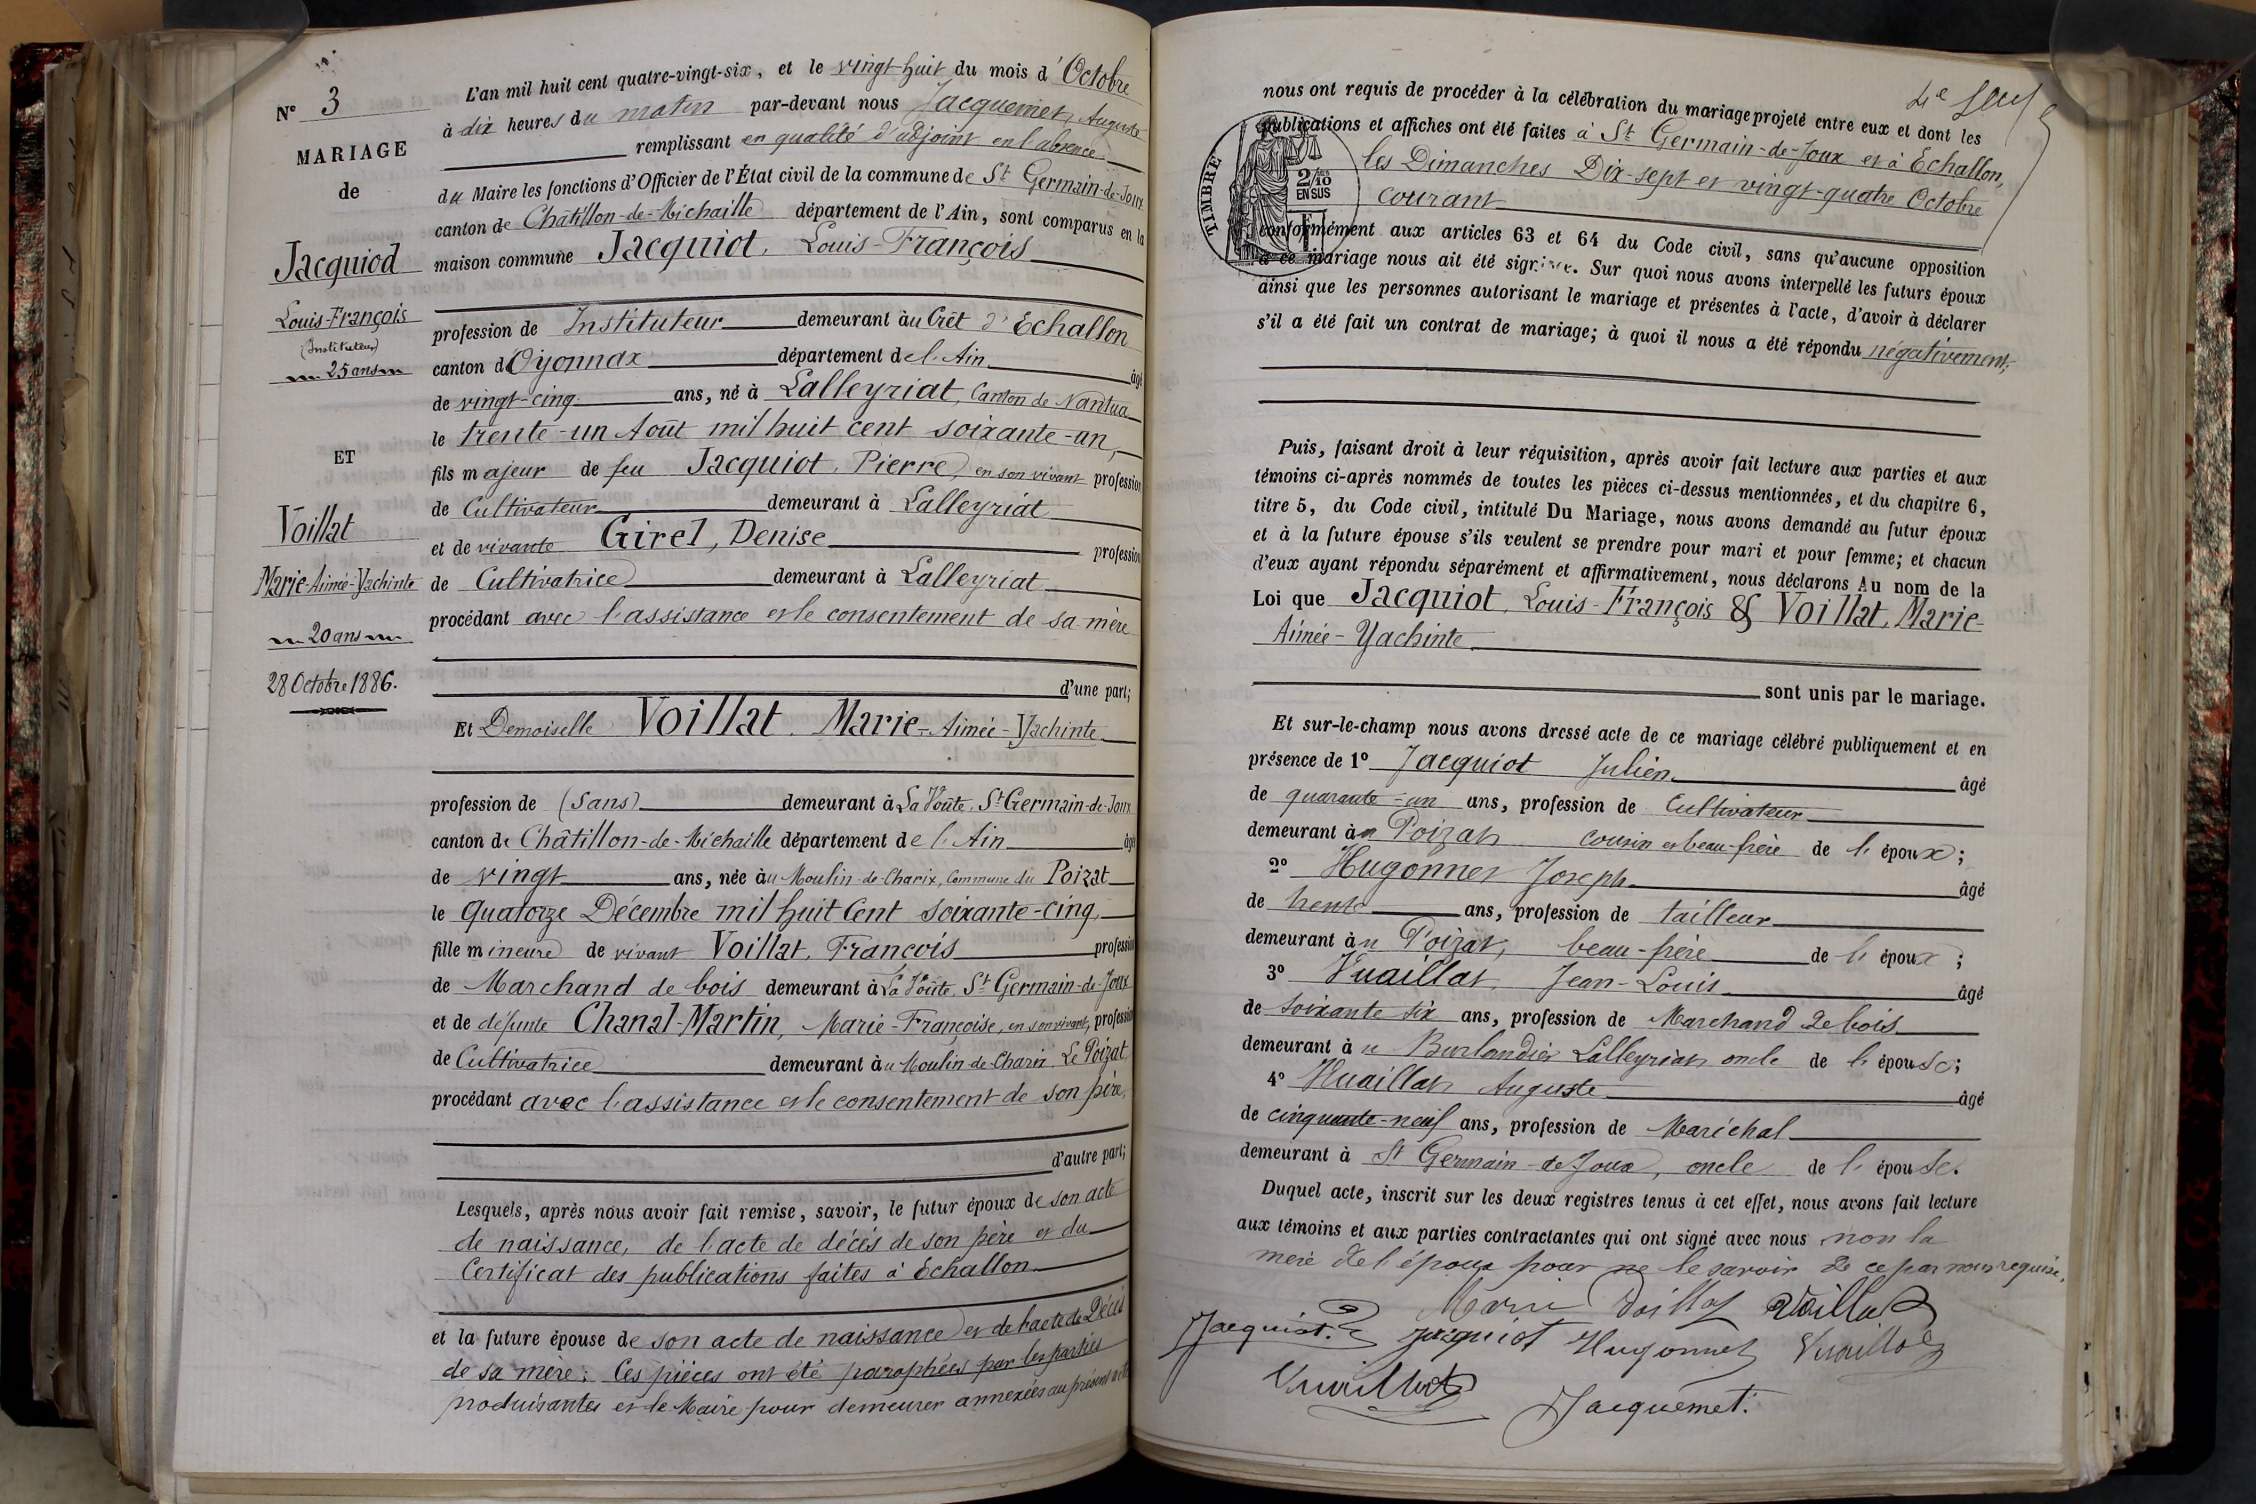 N° 3
MARIAGE
de
Jacquiod
Louis-François
(Instituteur)
25 ans
ET
Voillat
Marie-Aimée-Yachinte
20 ans
28 Octobre 1886.
L'an mil huit cent quatre-vingt-six, et le vingt-huit du mois d'Octobre
à dix heures du matin par-devant nous Jacquemet, Auguste
remplissant en qualité d'adjoint en l'absence
du Maire les fonctions d'Officier de l'État civil de la commune de St Germain-de-Joux
canton de Châtillon-de-Michaille département de l'Ain, sont comparus en la
maison commune Jacquiot, Louis-François
profession de Instituteur demeurant au Crêt d'Echallon
canton d'Oyonnax département de l'Ain âgé
de vingt-cinq ans, né à Lalleyriat, Canton de Nantua
le trente-un Août mil huit cent soixante-un,
fils majeur de feu Jacquiot, Pierre, en son vivant profession
de Cultivateur demeurant à Lalleyriat
et de vivante Girel, Denise profession
de Cultivatrice demeurant à Lalleyriat
procédant avec l'assistance et le consentement de sa mère
d'une part;
Et Demoiselle Voillat, Marie-Aimée-Yachinte
profession de (Sans) demeurant à La Voûte, St Germain-de-Joux
canton de Châtillon-de-Michaille département de l'Ain âgé
de vingt ans, née au Moulin-de-Charix, Commune du Poizat
le quatorze Décembre mil huit Cent soixante-cinq,
fille mineure de vivant Voillat, François profession
de Marchand de bois demeurant à La Voûte, St Germain-de-Joux
et de défunte Chanal-Martin, Marie-Françoise, en son vivant, profession
de Cultivatrice demeurant au Moulin-de-Charix, Le Poizat,
procédant avec l'assistance et le consentement de son père,
d'autre part;
Lesquels, après nous avoir fait remise, savoir, le futur époux de son acte
de naissance, de l'acte de décès de son père et du
Certificat des publications faites à Echallon
et la future épouse de son acte de naissance et de l'acte de Décès
de sa mère; Ces pièces ont été paraphées par les parties
produisantes et le Maire pour demeurer annexées au présent acte
nous ont requis de procéder à la célébration du mariage projeté entre eux et dont les
publications et affiches ont été faites à St Germain-de-Joux et à Echallon,
les Dimanches Dix-sept et vingt-quatre Octobre
courant
TIMBRE
2/10
EN SUS
conformément aux articles 63 et 64 du Code civil, sans qu'aucune opposition
à ce mariage nous ait été signifiée. Sur quoi nous avons interpellé les futurs époux
ainsi que les personnes autorisant le mariage et présentes à l'acte, d'avoir à déclarer
s'il a été fait un contrat de mariage; à quoi il nous a été répondu négativement;
Puis, faisant droit à leur réquisition, après avoir fait lecture aux parties et aux
témoins ci-après nommés de toutes les pièces ci-dessus mentionnées, et du chapitre 6,
titre 5, du Code civil, intitulé Du Mariage, nous avons demandé au futur époux
et à la future épouse s'ils veulent se prendre pour mari et pour femme; et chacun
d'eux ayant répondu séparément et affirmativement, nous déclarons Au nom de la
Loi que Jacquiot, Louis-François & Voillat, Marie-
Aimée-Yachinte
sont unis par le mariage.
Et sur-le-champ nous avons dressé acte de ce mariage célébré publiquement et en
présence de 1° Jacquiot Julien âgé
de quarante-un ans, profession de Cultivateur
demeurant au Poizat cousin et beau-frère de l'époux;
2° Hugonnet Joseph âgé
de trente ans, profession de tailleur
demeurant au Poizat, beau-frère de l'époux;
3° Vuaillat, Jean-Louis âgé
de soixante six ans, profession de Marchand de bois
demeurant à u Burlandier Lalleyriat oncle de l'épouse;
4° Vuaillat Auguste âgé
de cinquante-neuf ans, profession de Maréchal
demeurant à St Germain-de-Joux, oncle de l'épouse.
Duquel acte, inscrit sur les deux registres tenus à cet effet, nous avons fait lecture
aux témoins et aux parties contractantes qui ont signé avec nous non la
mère de l'époux pour ne le savoir de ce par nous requise,
Marie Voillat Voillat
Jacquiot. Jacquiot Hugonnet Vuaillat
Vuaillat
Jacquemet.